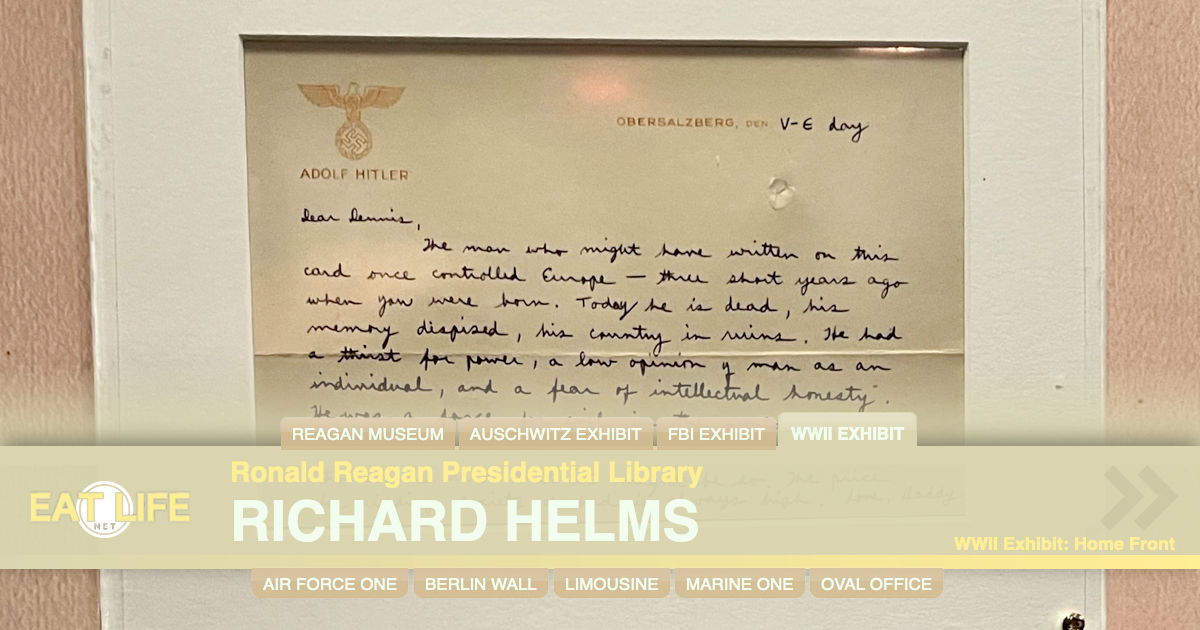 OBERSALZBERG, DEN V-E day
ADOLF HITLER
Dear Dennis,
The man who might have written on this
card once controlled Europe — three short years ago
when you were born. Today he is dead, his
memory dispised, his country in ruins. He had
a thirst for power, a low opinion of man as an
individual, and a fear of intellectual honesty.
He was a force
REAGAN MUSEUM
AUSCHWITZ EXHIBIT
FBI EXHIBIT
WWII EXHIBIT
Ronald Reagan Presidential Library
price
RICHARD HELMS
love, Daddy
EAT LIFE
NET
WWII Exhibit: Home Front
AIR FORCE ONE
BERLIN WALL
LIMOUSINE
MARINE ONE
OVAL OFFICE